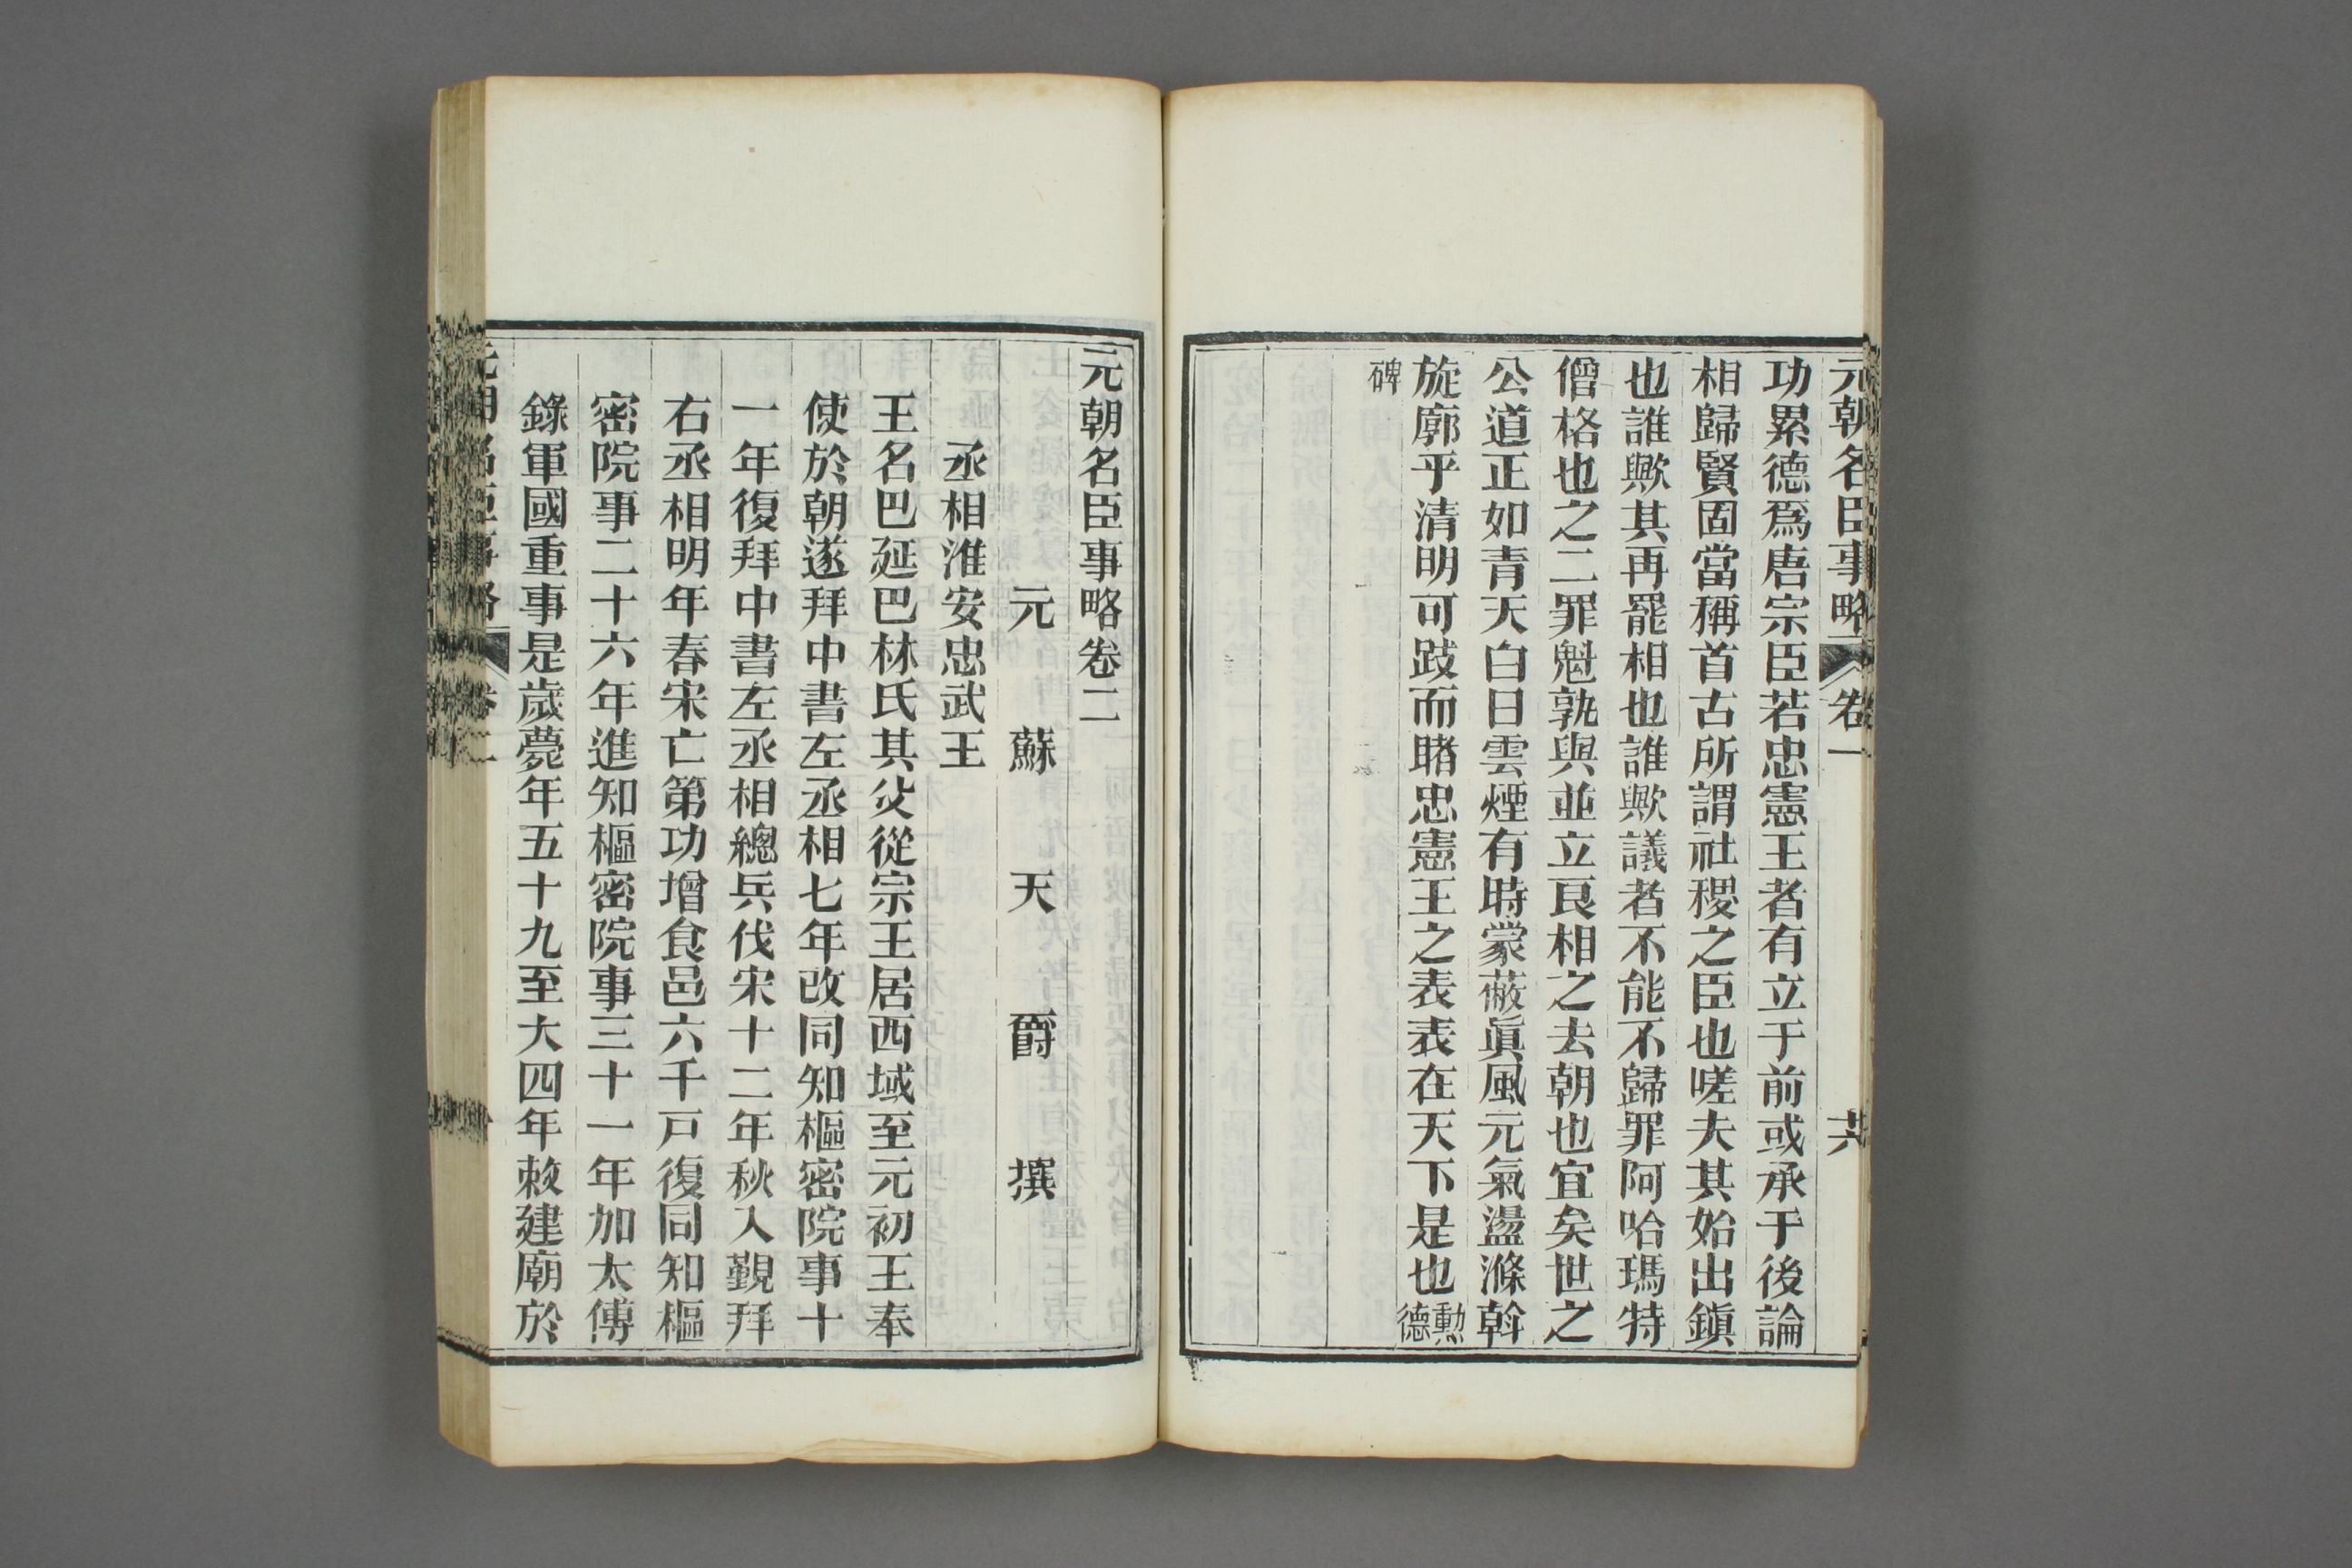 元朝名臣事略 卷一 共
功累德爲唐宗臣若忠憲王者有立于前或承于後論
相歸賢固當稱首古所謂社稷之臣也嗟夫其始出鎭
也誰歟其再罷相也誰歟議者不能不歸罪阿哈瑪特
僧格也之二罪魁孰與並立良相之去朝也宜矣世之
公道正如青天白日雲煙有時蒙蔽眞風元氣盪滌斡
旋廓乎清明可跂而睹忠憲王之表表在天下是也勳德
碑
元朝名臣事略卷二
元 蘇 天 爵 撰
丞相淮安忠武王
王名巴延巴林氏其父從宗王居西域至元初王奉
使於朝遂拜中書左丞相七年改同知樞密院事十
一年復拜中書左丞相總兵伐宋十二年秋入覲拜
右丞相明年春宋亡第功增食邑六千戸復同知樞
密院事二十六年進知樞密院事三十一年加太傅
錄軍國重事是歲薨年五十九至大四年敕建廟於
元朝名臣事略 卷二